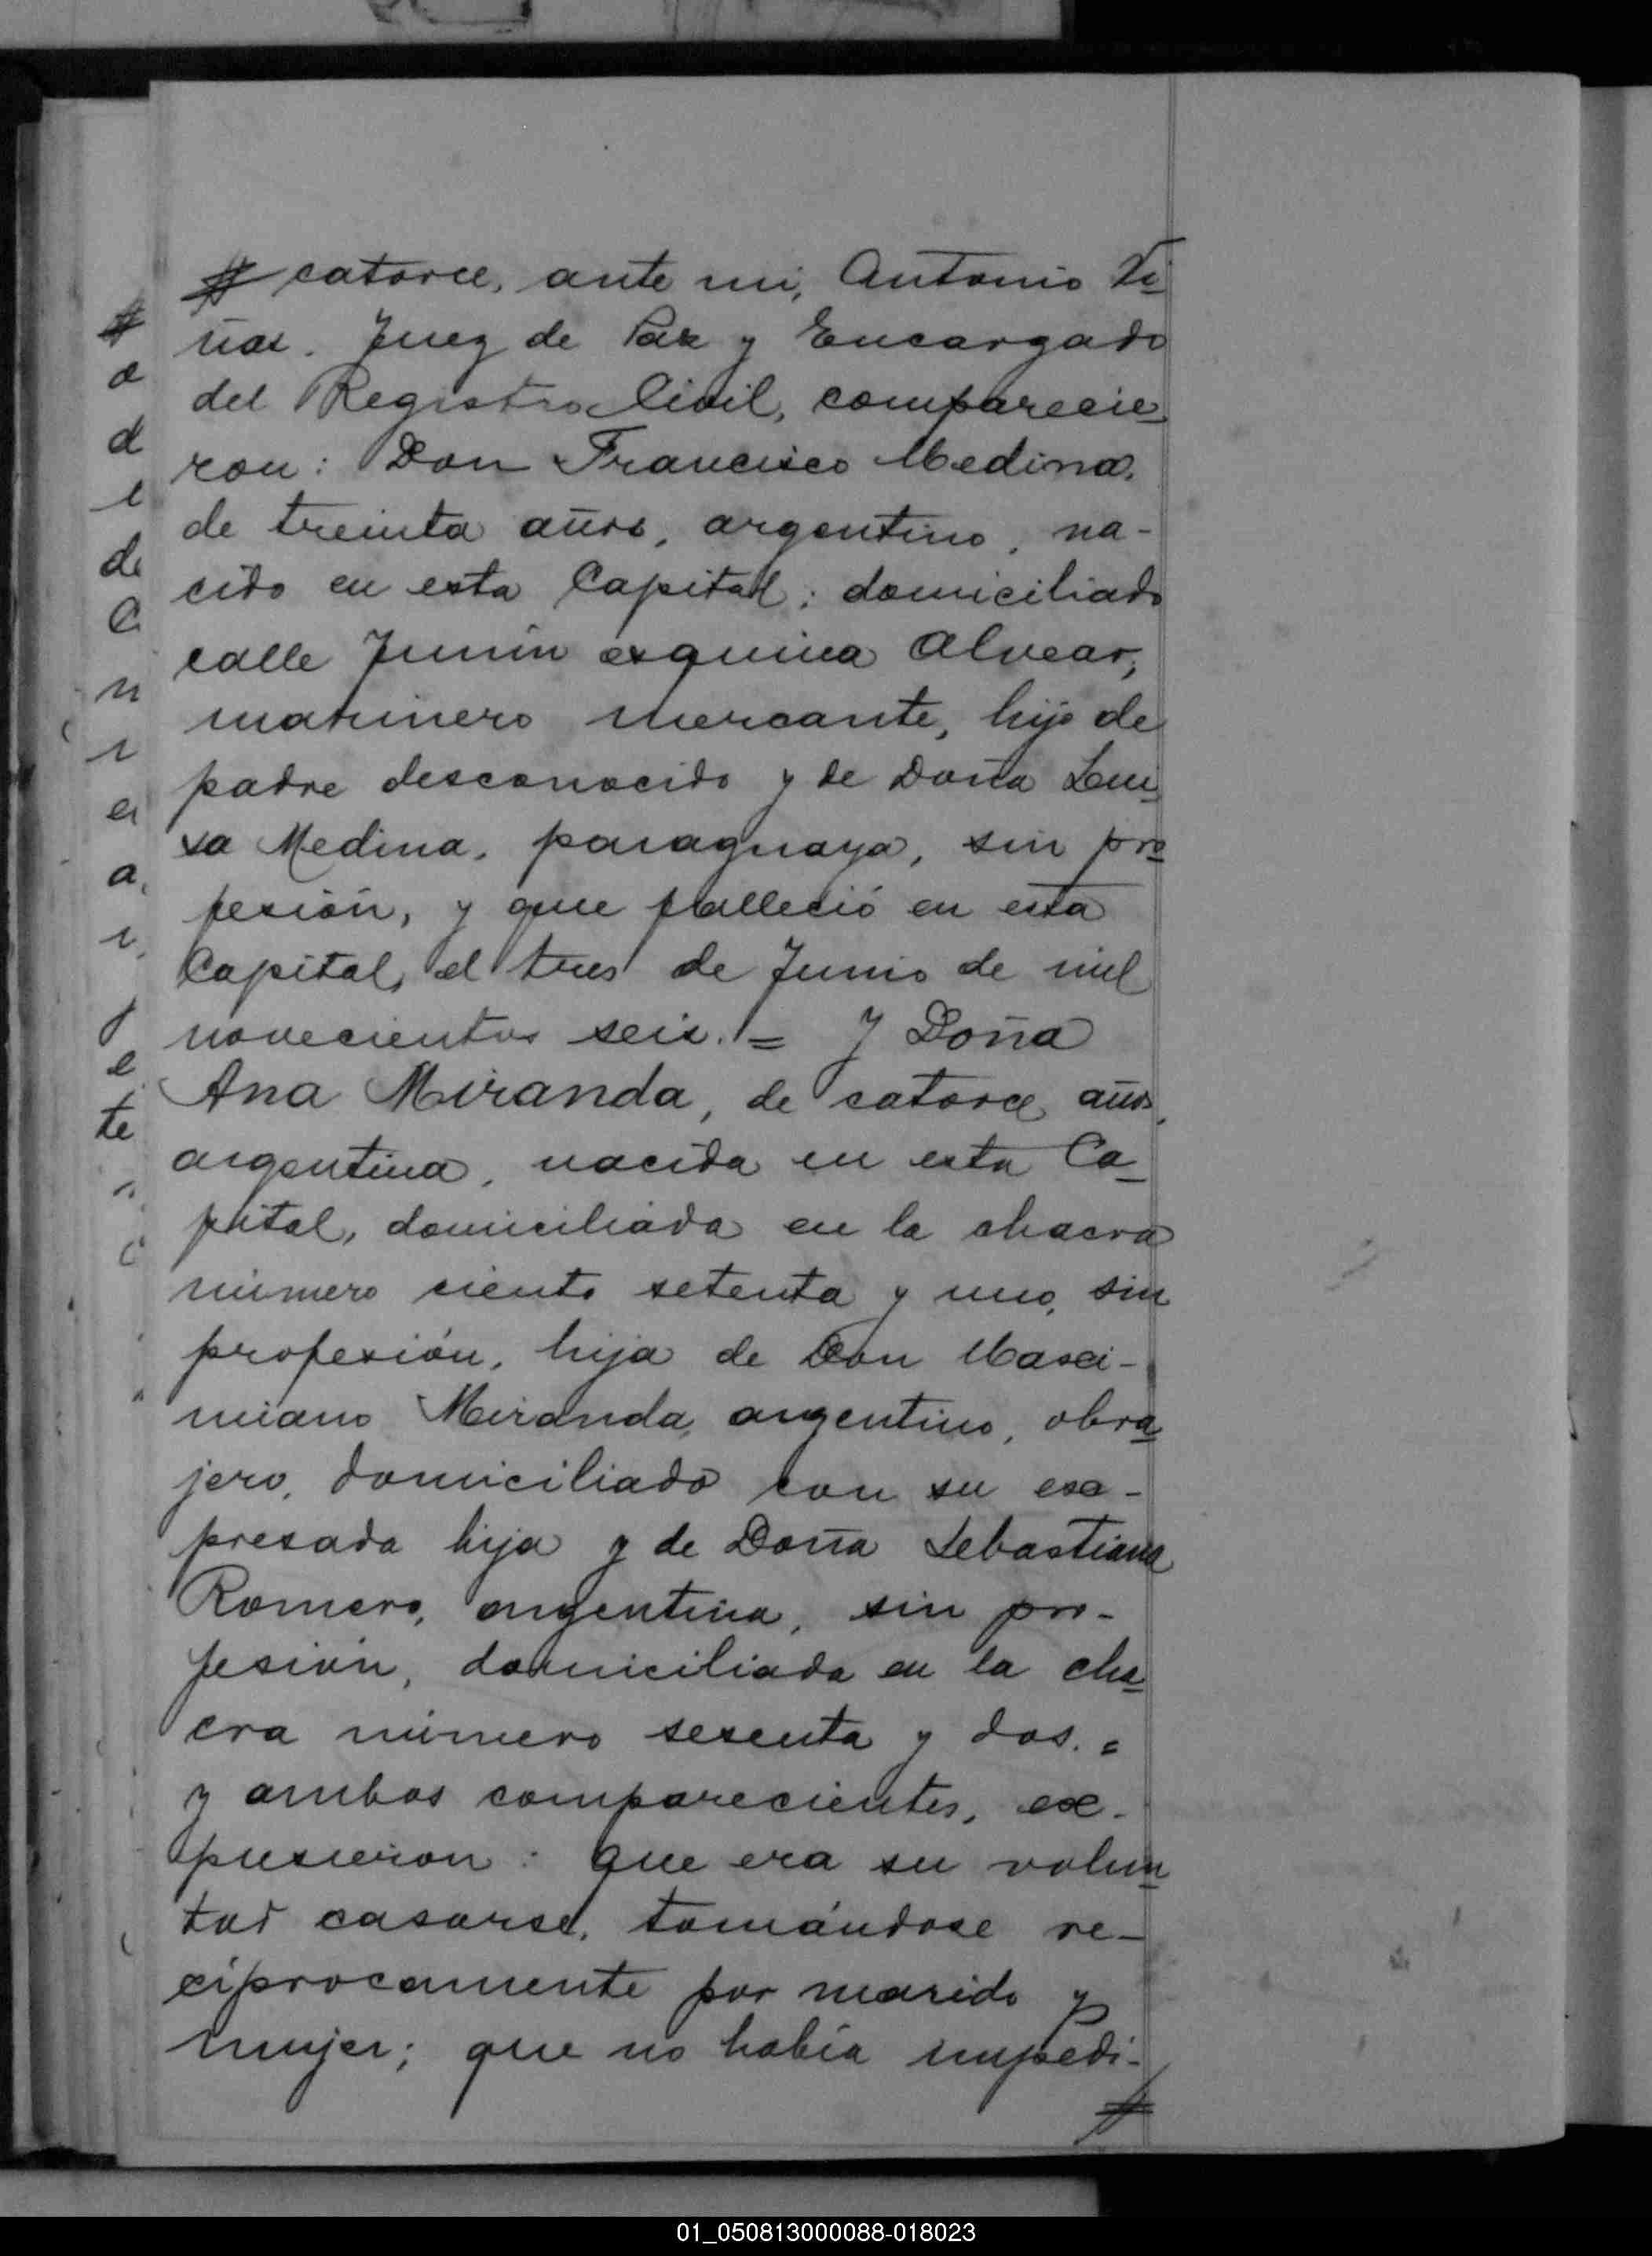 # catorce, ante mi, Antonio Vi
ñas. Juez de Paz y Encargado
del Registro Civil, comparecie
ron: Don Francisco Medina,
de treinta años, argentino, na-
cido en esta Capital; domiciliado
calle Junín esquina Alvear,
marinero mercante, hijo de
padre desconocido y de Doña Lui
sa Medina, paraguaya, sin pro
fesión, y que falleció en esta
Capital, el tres de Junio de mil
novecientos seis. = Y Doña
Ana Miranda, de catorce años,
argentina, nacida en esta Ca
pital, domiciliada en la chacra
número ciento setenta y uno, sin
profesión, hija de Don Maxi-
miano Miranda, argentino, obra
jero, domiciliado con su ex-
presada hija y de Doña Sebastiana
Romero, argentina, sin pro-
fesión, domiciliada en la cha
cra número sesenta y dos. =
y ambos comparecientes, ex-
pusieron: que era su volun
tad casarse, tomándose re-
ciprocamente por marido y
mujer; que no había impedi-
#
01_050813000088-018023